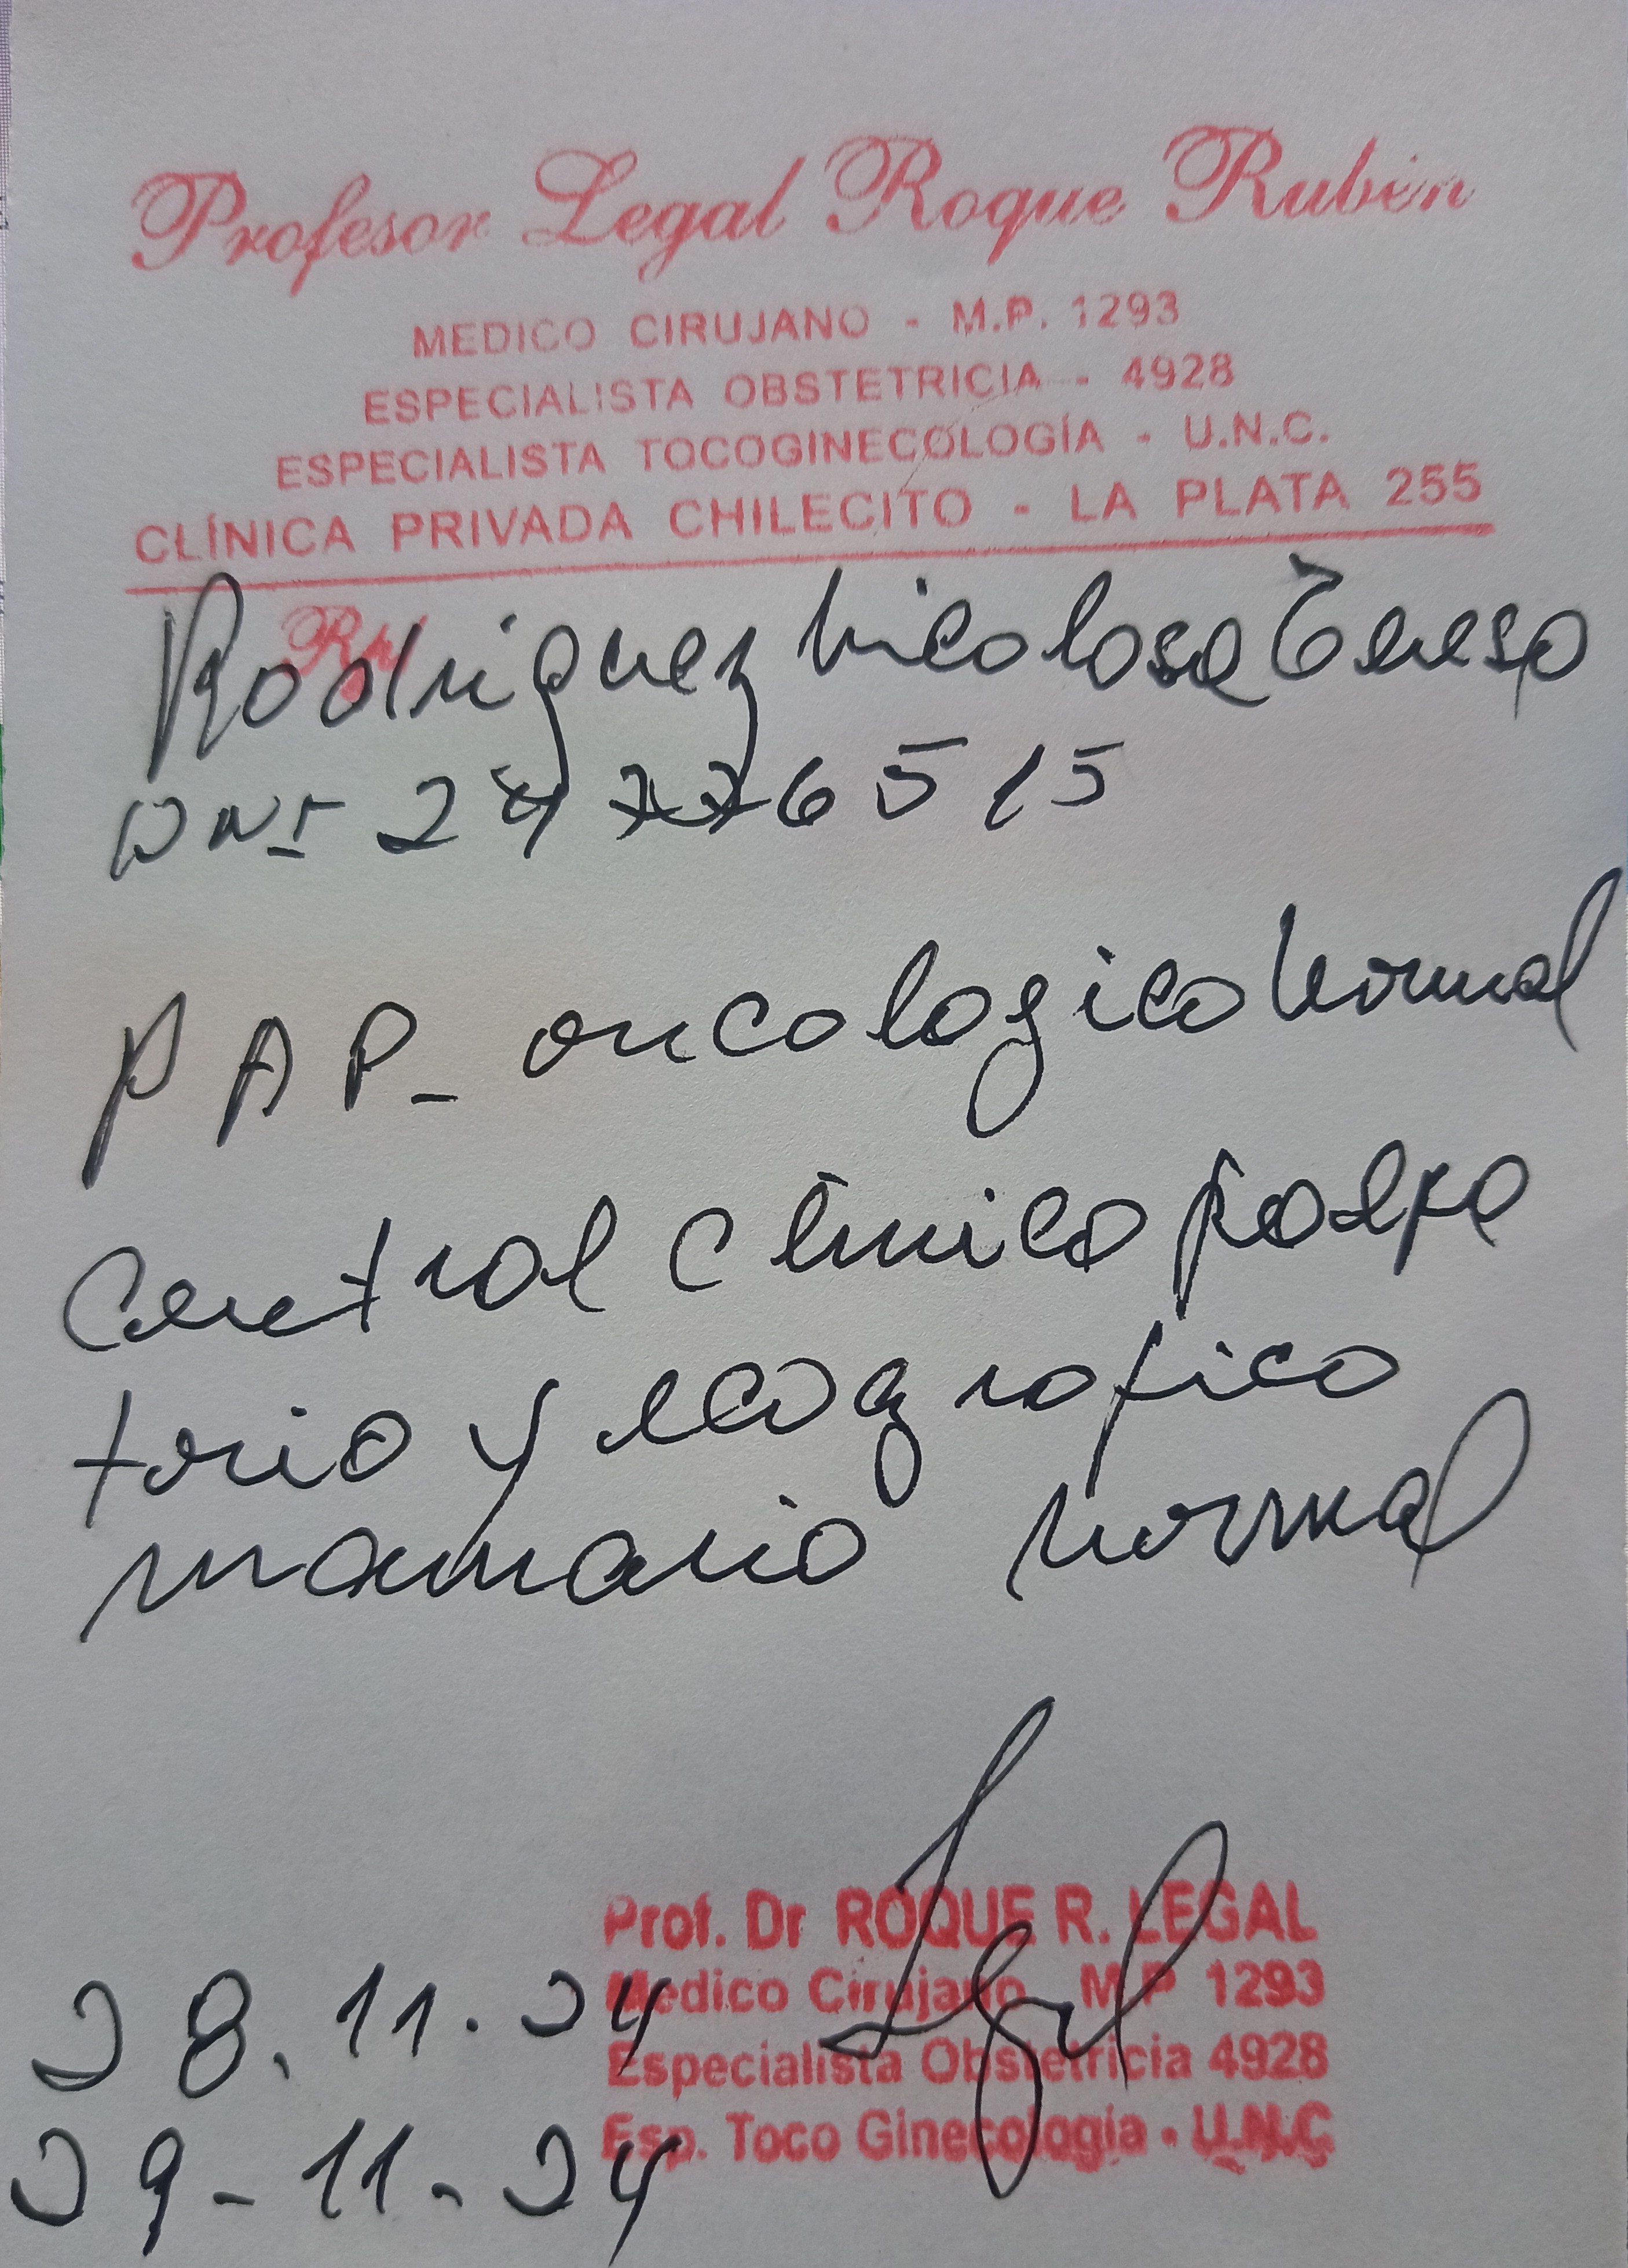 Profesor Legal Roque Rubén
MEDICO CIRUJANO - M.P. 1293
ESPECIALISTA OBSTETRICIA - 4928
ESPECIALISTA TOCOGINECOLOGÍA - U.N.C.
CLÍNICA PRIVADA CHILECITO - LA PLATA 255
Rp/
Rodriguez Nicolosa Teresa
DNI 24776515
PAP - oncologico Normal
Control clínico palpa
torio y ecografico
mamario normal
Prof. Dr ROQUE R. LEGAL
Medico Cirujano M P 1293
Especialista Obstetricia 4928
Esp. Toco Ginecología - U.N.C
28.11.24
29-11-24